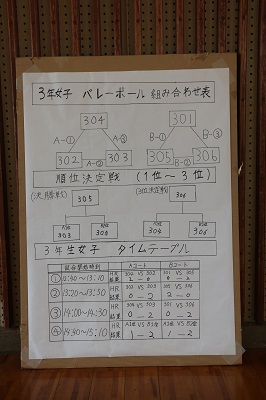 3年女子 バレーボール 組み合わせ表
304 301
A-① A-③ B-① B-③
302 A-② 303 305 B-② 306
順位決定戦 (1位～3位)
(決勝戦) (3位決定戦)
305
303 304
3年生女子 タイムテーブル
試合開始時刻 Aコート Bコート
① 12:40~13:10 HR 302 VS 303 301 VS 305
結果 2-0
② 13:20~13:50 HR
結果 0-2 2-0
③ 14:00~14:30 HR
結果 0-2 0-2
④ 14:40~15:10 HR
結果 1-2 1-2